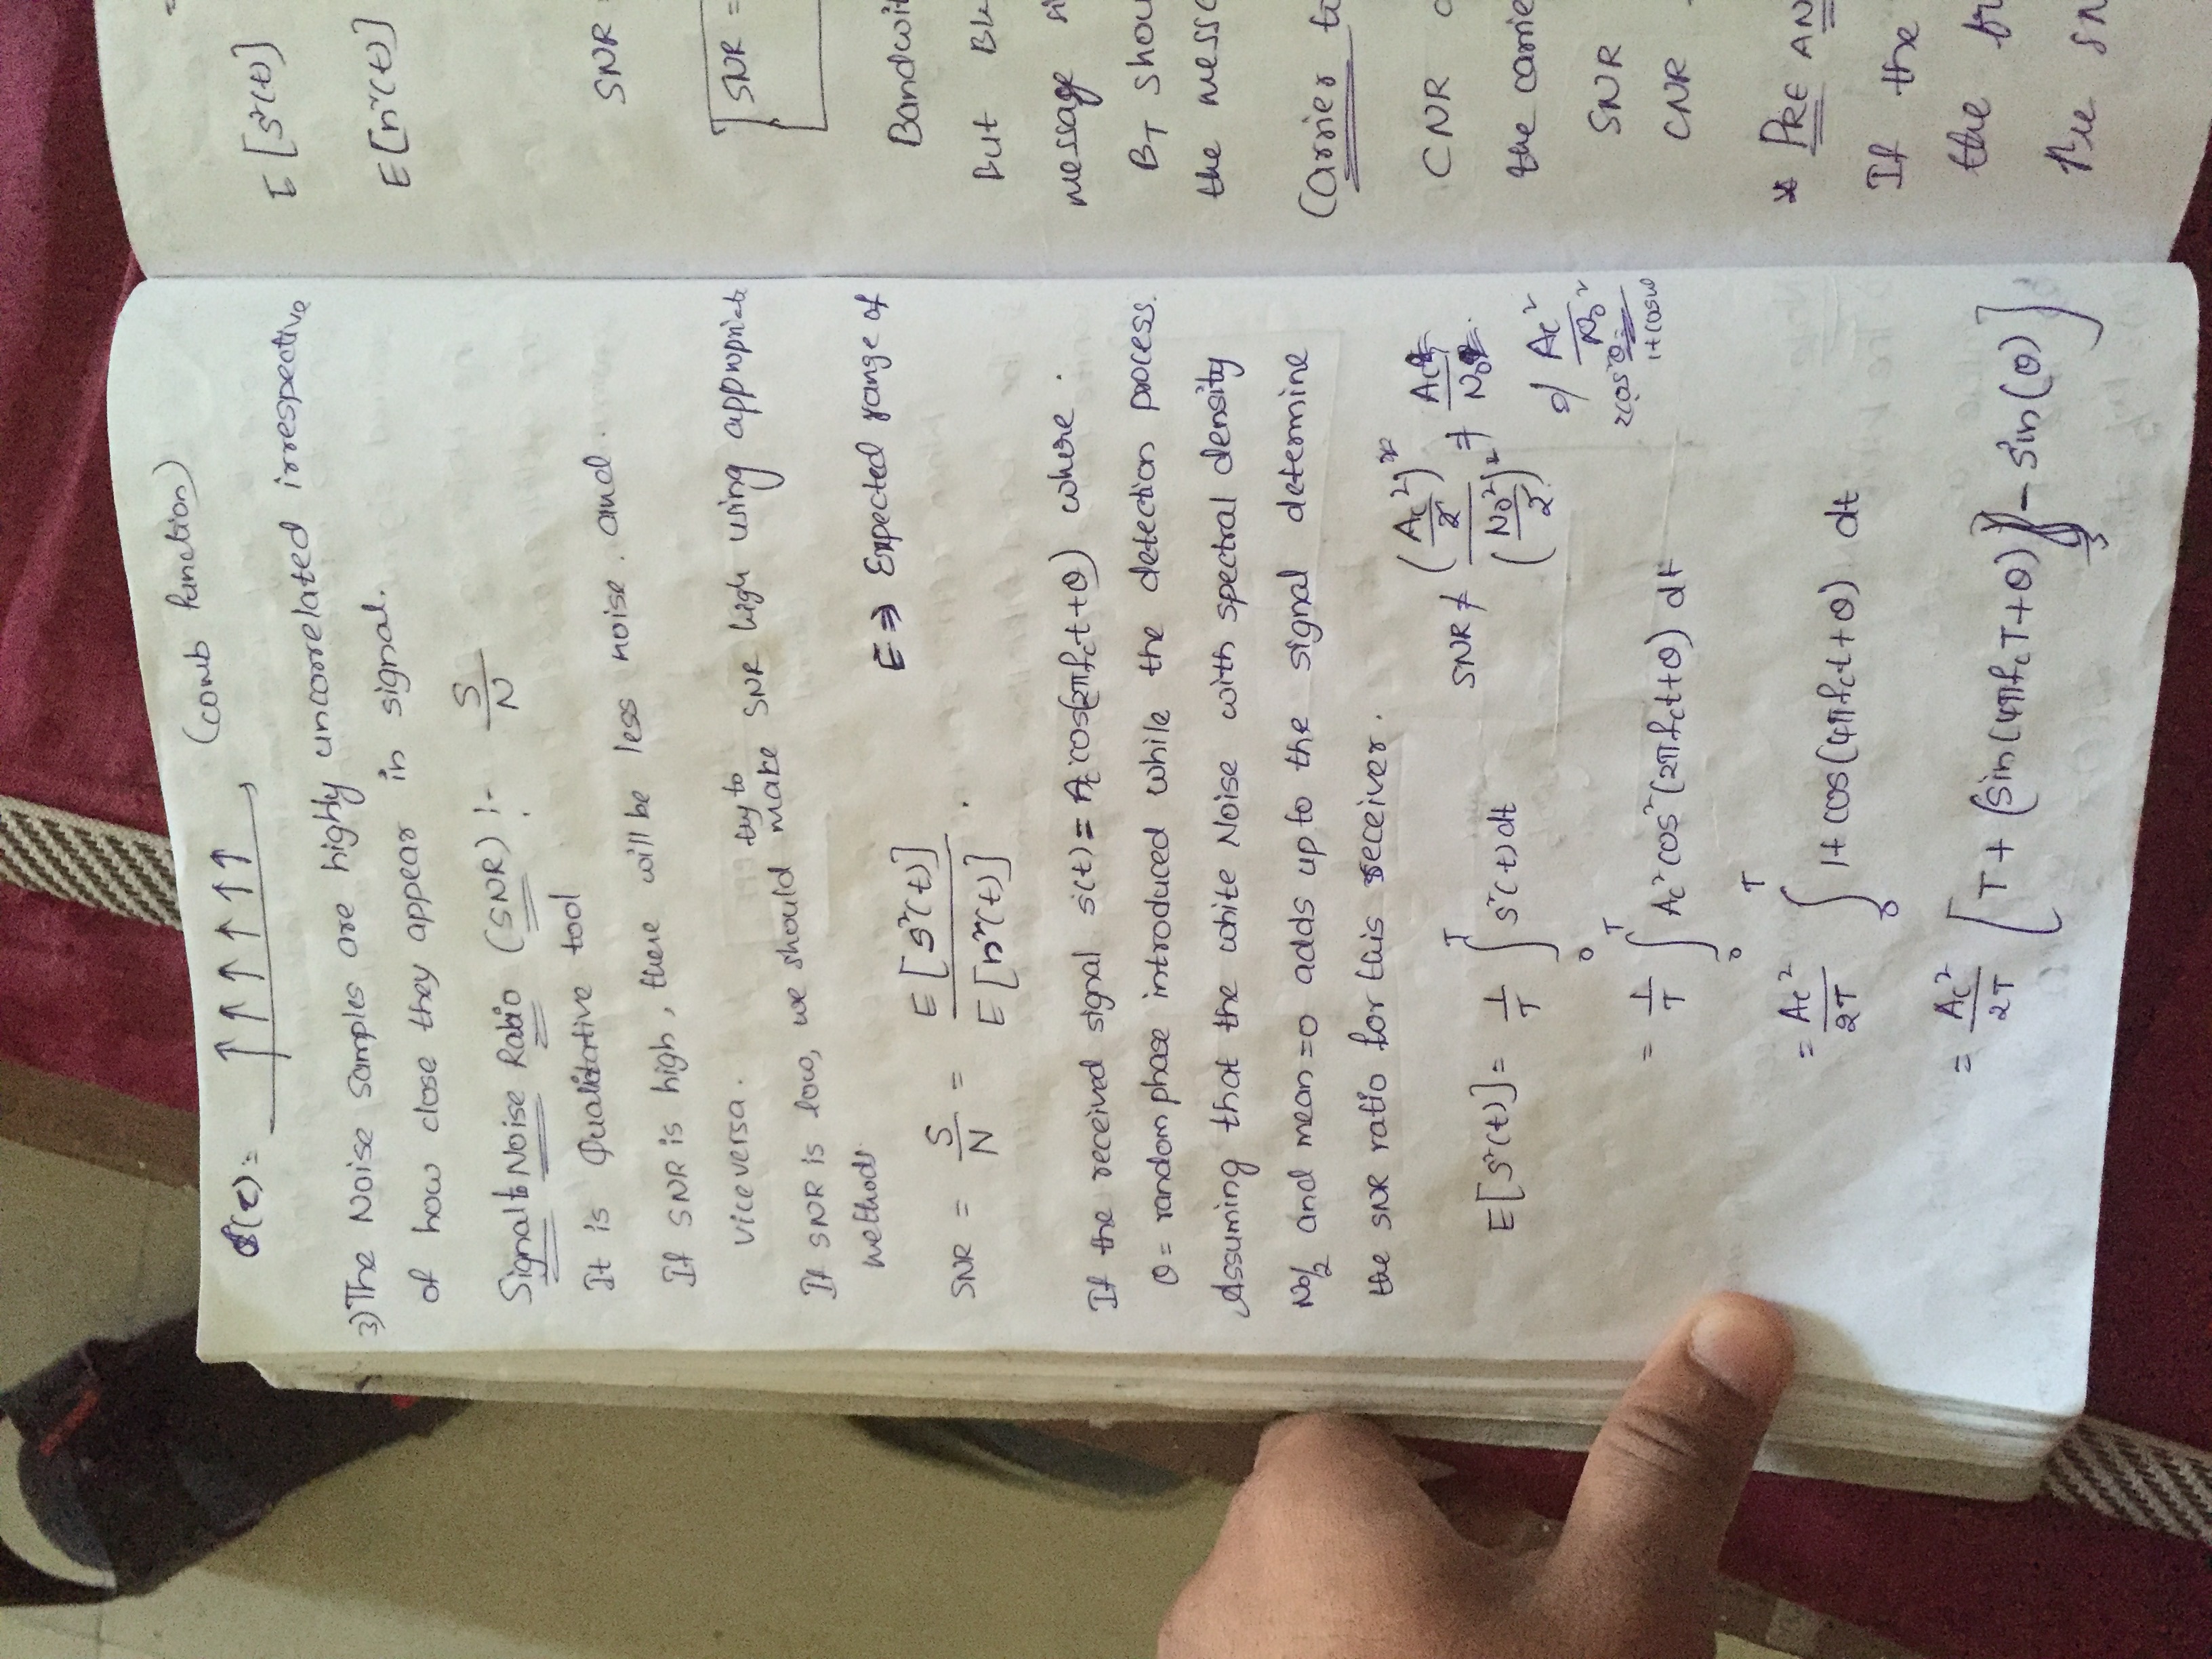 δ(τ) =
(comb function)
3) The Noise samples are highly uncorrelated irrespective
of how close they appear in signal.
Signal to Noise Ratio (SNR) :- S/N
It is Qualitative tool
If SNR is high, there will be less noise. and.
viceversa.
If SNR is low, we should try to make SNR high using appropriate
methods
E ⇒ Expected range of
SNR = S/N = E[s²(t)] / E[n²(t)].
If the received signal s(t) = Ac cos(2πfct+θ) where
θ = random phase introduced while the detection process.
Assuming that the white Noise with spectral density
No/2 and mean=0 adds up to the signal determine
the SNR ratio for this receiver.
E[s²(t)] = 1/T ∫₀ᵀ s²(t) dt
2cos²θ =
= 1/T ∫₀ᵀ Ac² cos²(2πfct+θ) dt
= Ac²/2T ∫₀ᵀ 1+cos(4πfct+θ) dt
= Ac²/2T [T + (sin(4πfcT+θ)) - sin(θ)]
E[s²(t)]
E[n²(t)]
SNR =
SNR =
But
message
BT
the
Carrier
CNR
the
SNR
CNR
* PRE
If the
the
the